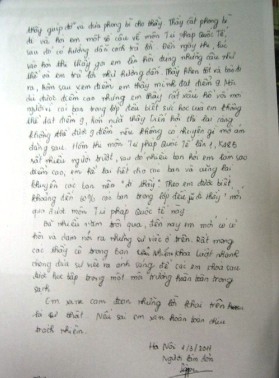 thầy giúp đỡ và đưa phong bì cho thầy. Thầy cất phong bì
đi và hỏi em một số câu về môn Tư pháp Quốc Tế,
sau đó có hướng dẫn cách trả lời. Đến ngày thi, lúc
vào hỏi thi thầy gọi em lên hỏi đúng những câu như
thế và em trả lời như hướng dẫn. Thầy khen tốt và cho đi
ra, hôm sau xem điểm em thấy mình đạt điểm 9. Mặc
dù được điểm cao nhưng em thấy rất xấu hổ vì mọi
người vì các bạn trong lớp đều biết sức học của em không
thể đạt điểm 9, hơn nữa thầy hỏi thi ai cũng
không thể được 9 điểm nếu không có chuyện gì mờ ám
đằng sau. Hôm thi môn Tư pháp Quốc tế lần 1, K4EB
rất nhiều người trượt, sau đó nhiều bạn hỏi em làm sao
điểm cao, em kể lại hết cho các bạn và cũng
khuyên các bạn nên "đi thầy". Theo em được biết
khoảng đến 60% các bạn trong lớp đều phải "đi thầy" mới
qua được môn Tư pháp Quốc tế này
Đã nhiều năm trôi qua, đến nay em mới có cơ
hội và dám nói ra những sự việc ở trên. Rất mong
các thầy cô trong ban chủ nhiệm Khoa Luật nhanh
chóng đưa sự việc ra ánh sáng để các em khóa sau
được học tập trong một môi trường hoàn toàn trong
sạch.
Em xin cam đoan những lời khai trên hoàn
là sự thật. Nếu sai em xin hoàn toàn chịu
trách nhiệm.
Hà Nội 4/3/2011
Người làm đơn